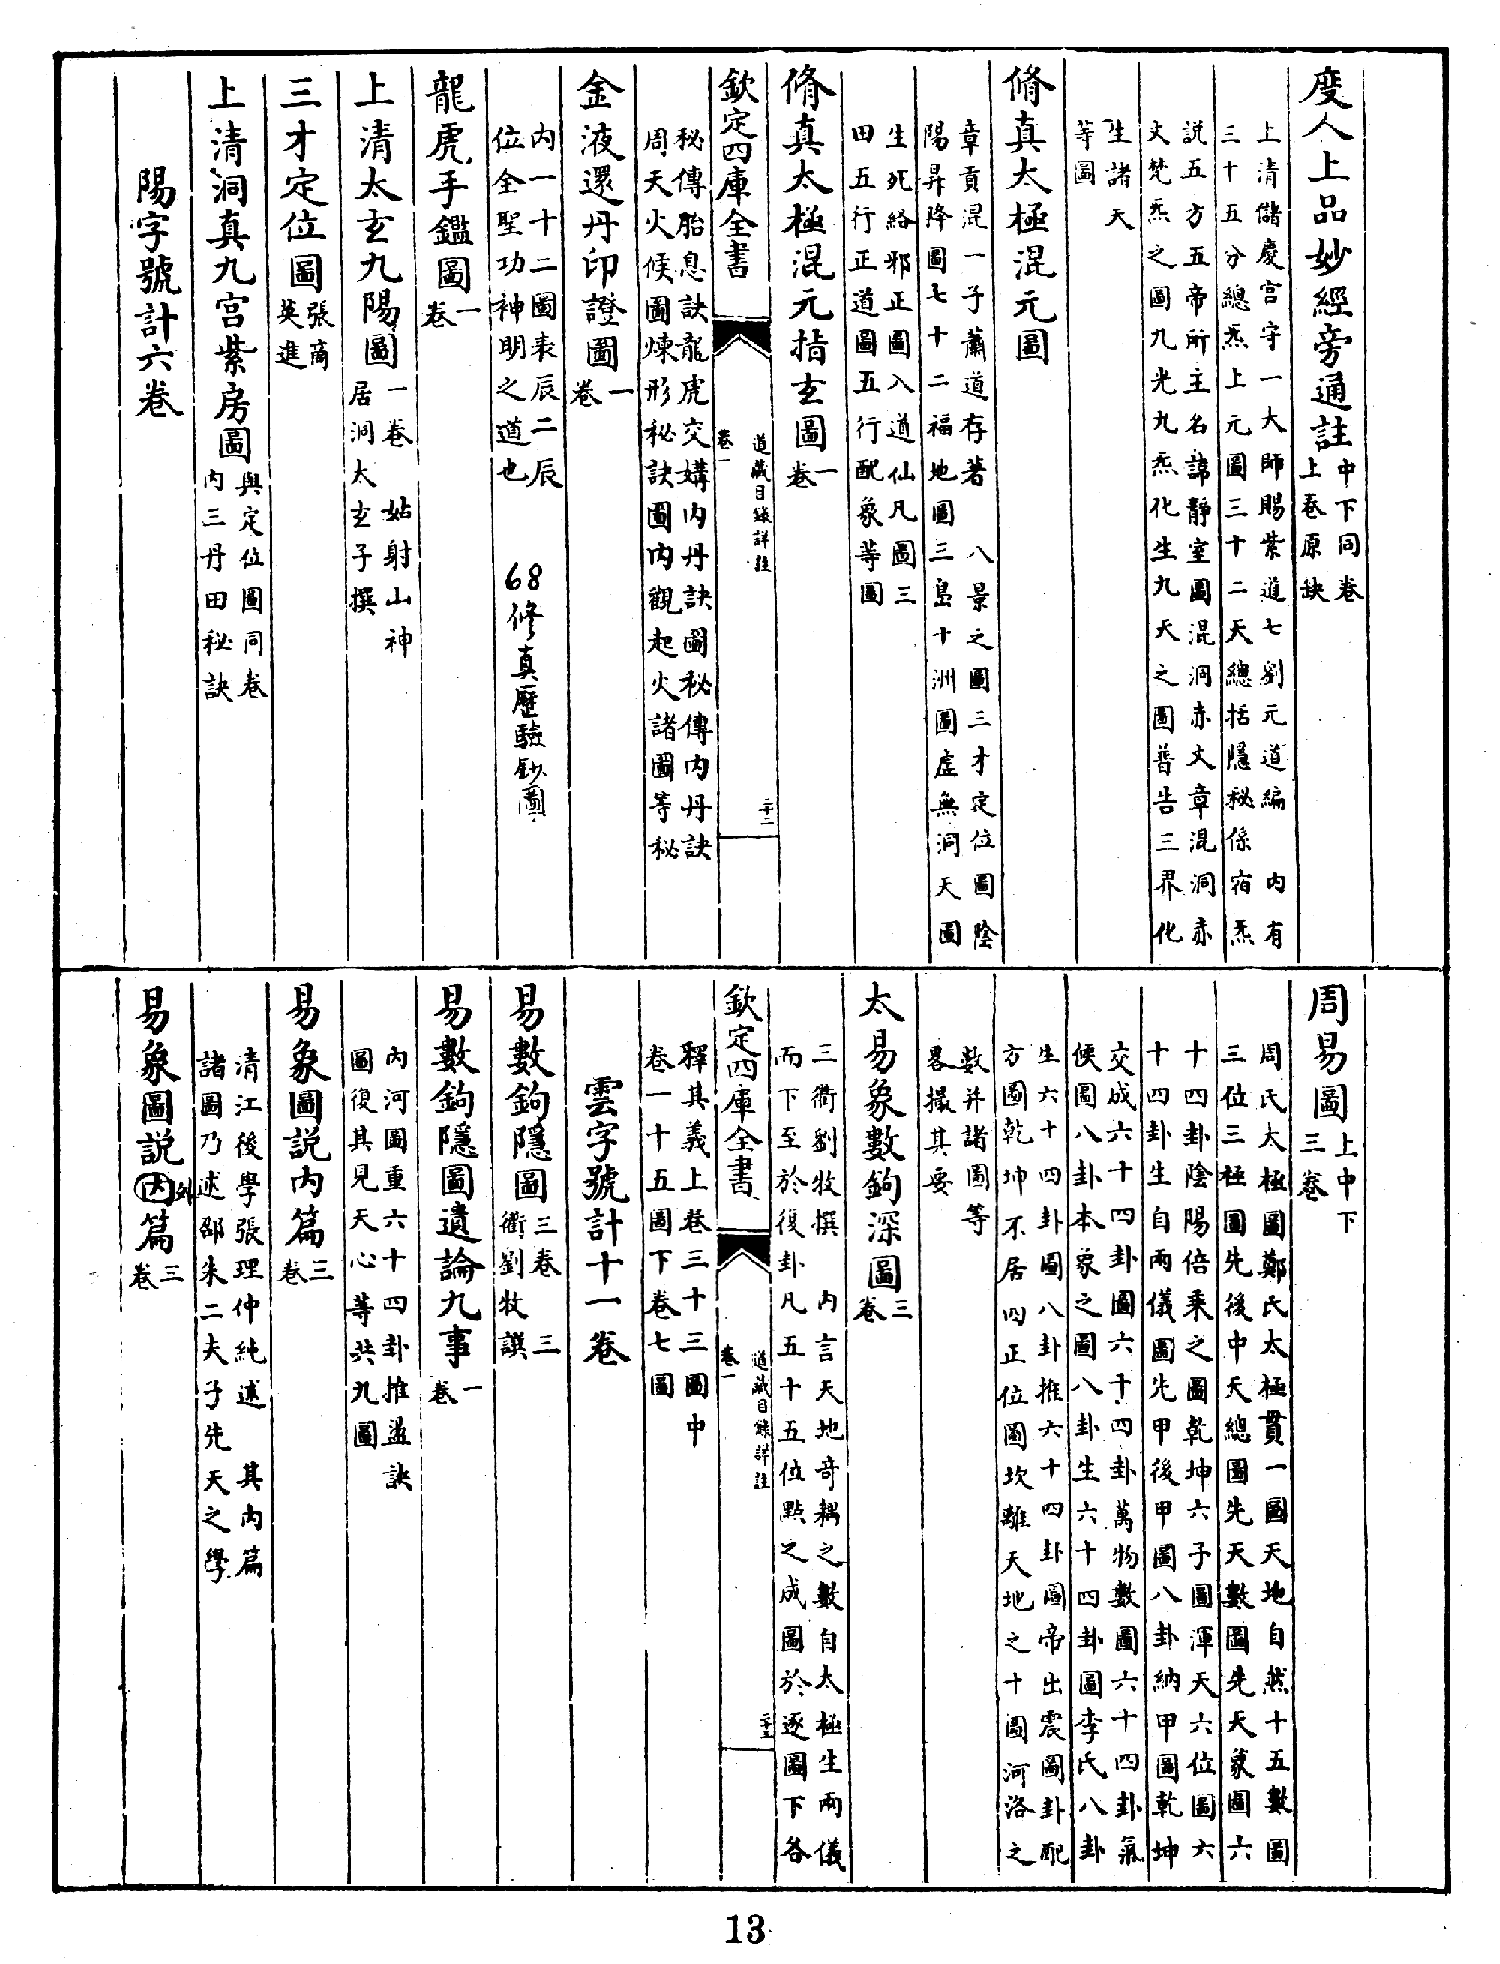 度人上品妙經旁通註中下同卷上卷原缺
上清儲慶宮守一大師賜紫道七劉元道編　内有
三十五分總炁上元圖三十二天總括隱秘係宿炁
説五方五帝所主名諱靜室圖混洞赤文章混洞赤
文梵炁之圖九光九炁化生九天之圖普告三界化
生諸天
等圖
脩真太極混元圖
章貢混一子蕭道存著　八景之圖三才定位圖陰
陽昇降圖七十二福地圖三島十洲圖虛無洞天圖
生死絡邪正圖入道仙凡圖三
田五行正道圖五行配象等圖
脩真太極混元指玄圖一卷
欽定四庫全書
道藏目錄詳註
卷一
二十二
秘傳胎息訣龍虎交媾内丹訣圖秘傳内丹訣
周天火候圖煉形秘訣圖内觀起火諸圖等秘
金液還丹印證圖一卷
内一十二圖表辰二辰
位全聖功神明之道也
68修真歷驗鈔圖
龍虎手鑑圖一卷
上清太玄九陽圖一卷　姑射山神居洞太玄子撰
三才定位圖張商英進
上清洞真九宮紫房圖與定位圖同卷内三丹田秘訣
陽字號計六卷
周易圖上中下三卷
周氏太極圖鄭氏太極貫一圖天地自然十五數圖
三位三極圖先後中天總圖先天數圖先天象圖六
十四卦陰陽倍乘之圖乾坤六子圖渾天六位圖六
十四卦生自兩儀圖先甲後甲圖八卦納甲圖乾坤
交成六十四卦圖六十四卦萬物數圖六十四卦氣
候圖八卦本象之圖八卦生六十四卦圖李氏八卦
生六十四卦圖八卦推六十四卦圖帝出震圖卦配
方圖乾坤不居四正位圖坎離天地之十圖河洛之
數并諸圖等
畧撮其要
太易象數鉤深圖三卷
三衢劉牧撰　内言天地奇耦之數自太極生兩儀
而下至於復卦凡五十五位點之成圖於逐圖下各
欽定四庫全書
道藏目錄詳註
卷一
二十三
釋其義上卷三十三圖中
卷一十五圖下卷七圖
雲字號計十一卷
易數鉤隱圖三卷　三衢劉牧譔
易數鉤隱圖遺論九事一卷
内河圖重六十四卦推盪訣
圖復其見天心等共九圖
易象圖説内篇三卷
清江後學張理仲純述　其内篇
諸圖乃述邵朱二夫子先天之學
易象圖説内外篇三卷
13